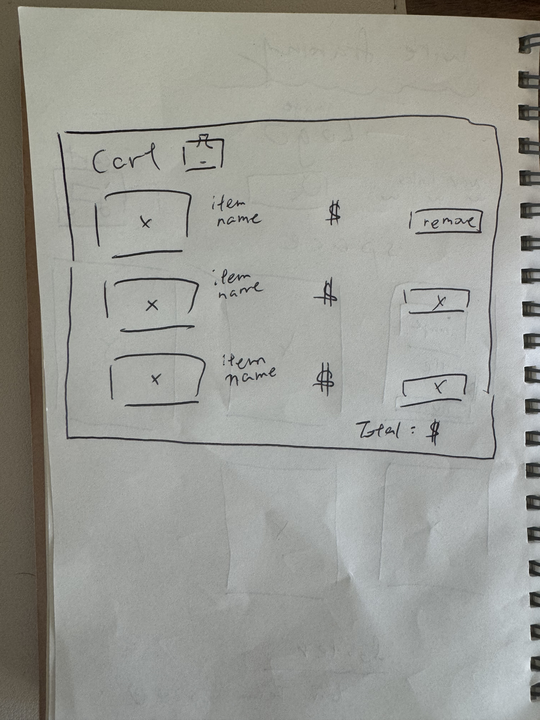 Cart
item
name
$
remove
item
name
$
x
item
name
$
x
Total : $